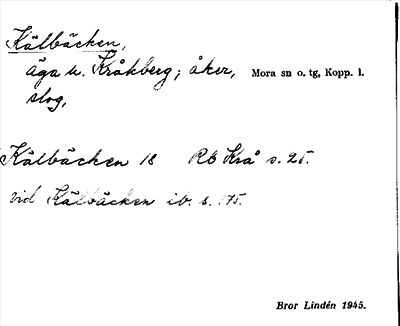 Kälbäcken,
äga u. Kråkberg; åker, Mora sn o. tg, Kopp. l.
slog,
Kälbäcken 18 RB Krå s. 25.
vid Kälbäcken ib. s. 175.
Bror Lindén 1945.